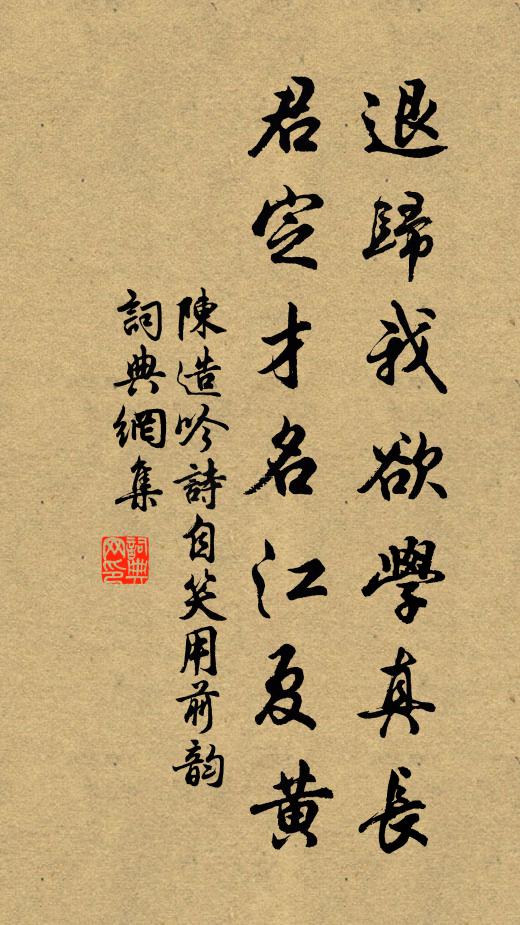 退歸我欲學真長
君定才名江夏黃
陳造吟詩自笑用前韵
詞典網集
詞典网印